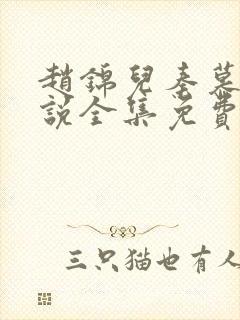 趙錦兒秦慕
說全集免費
三只猫也有人